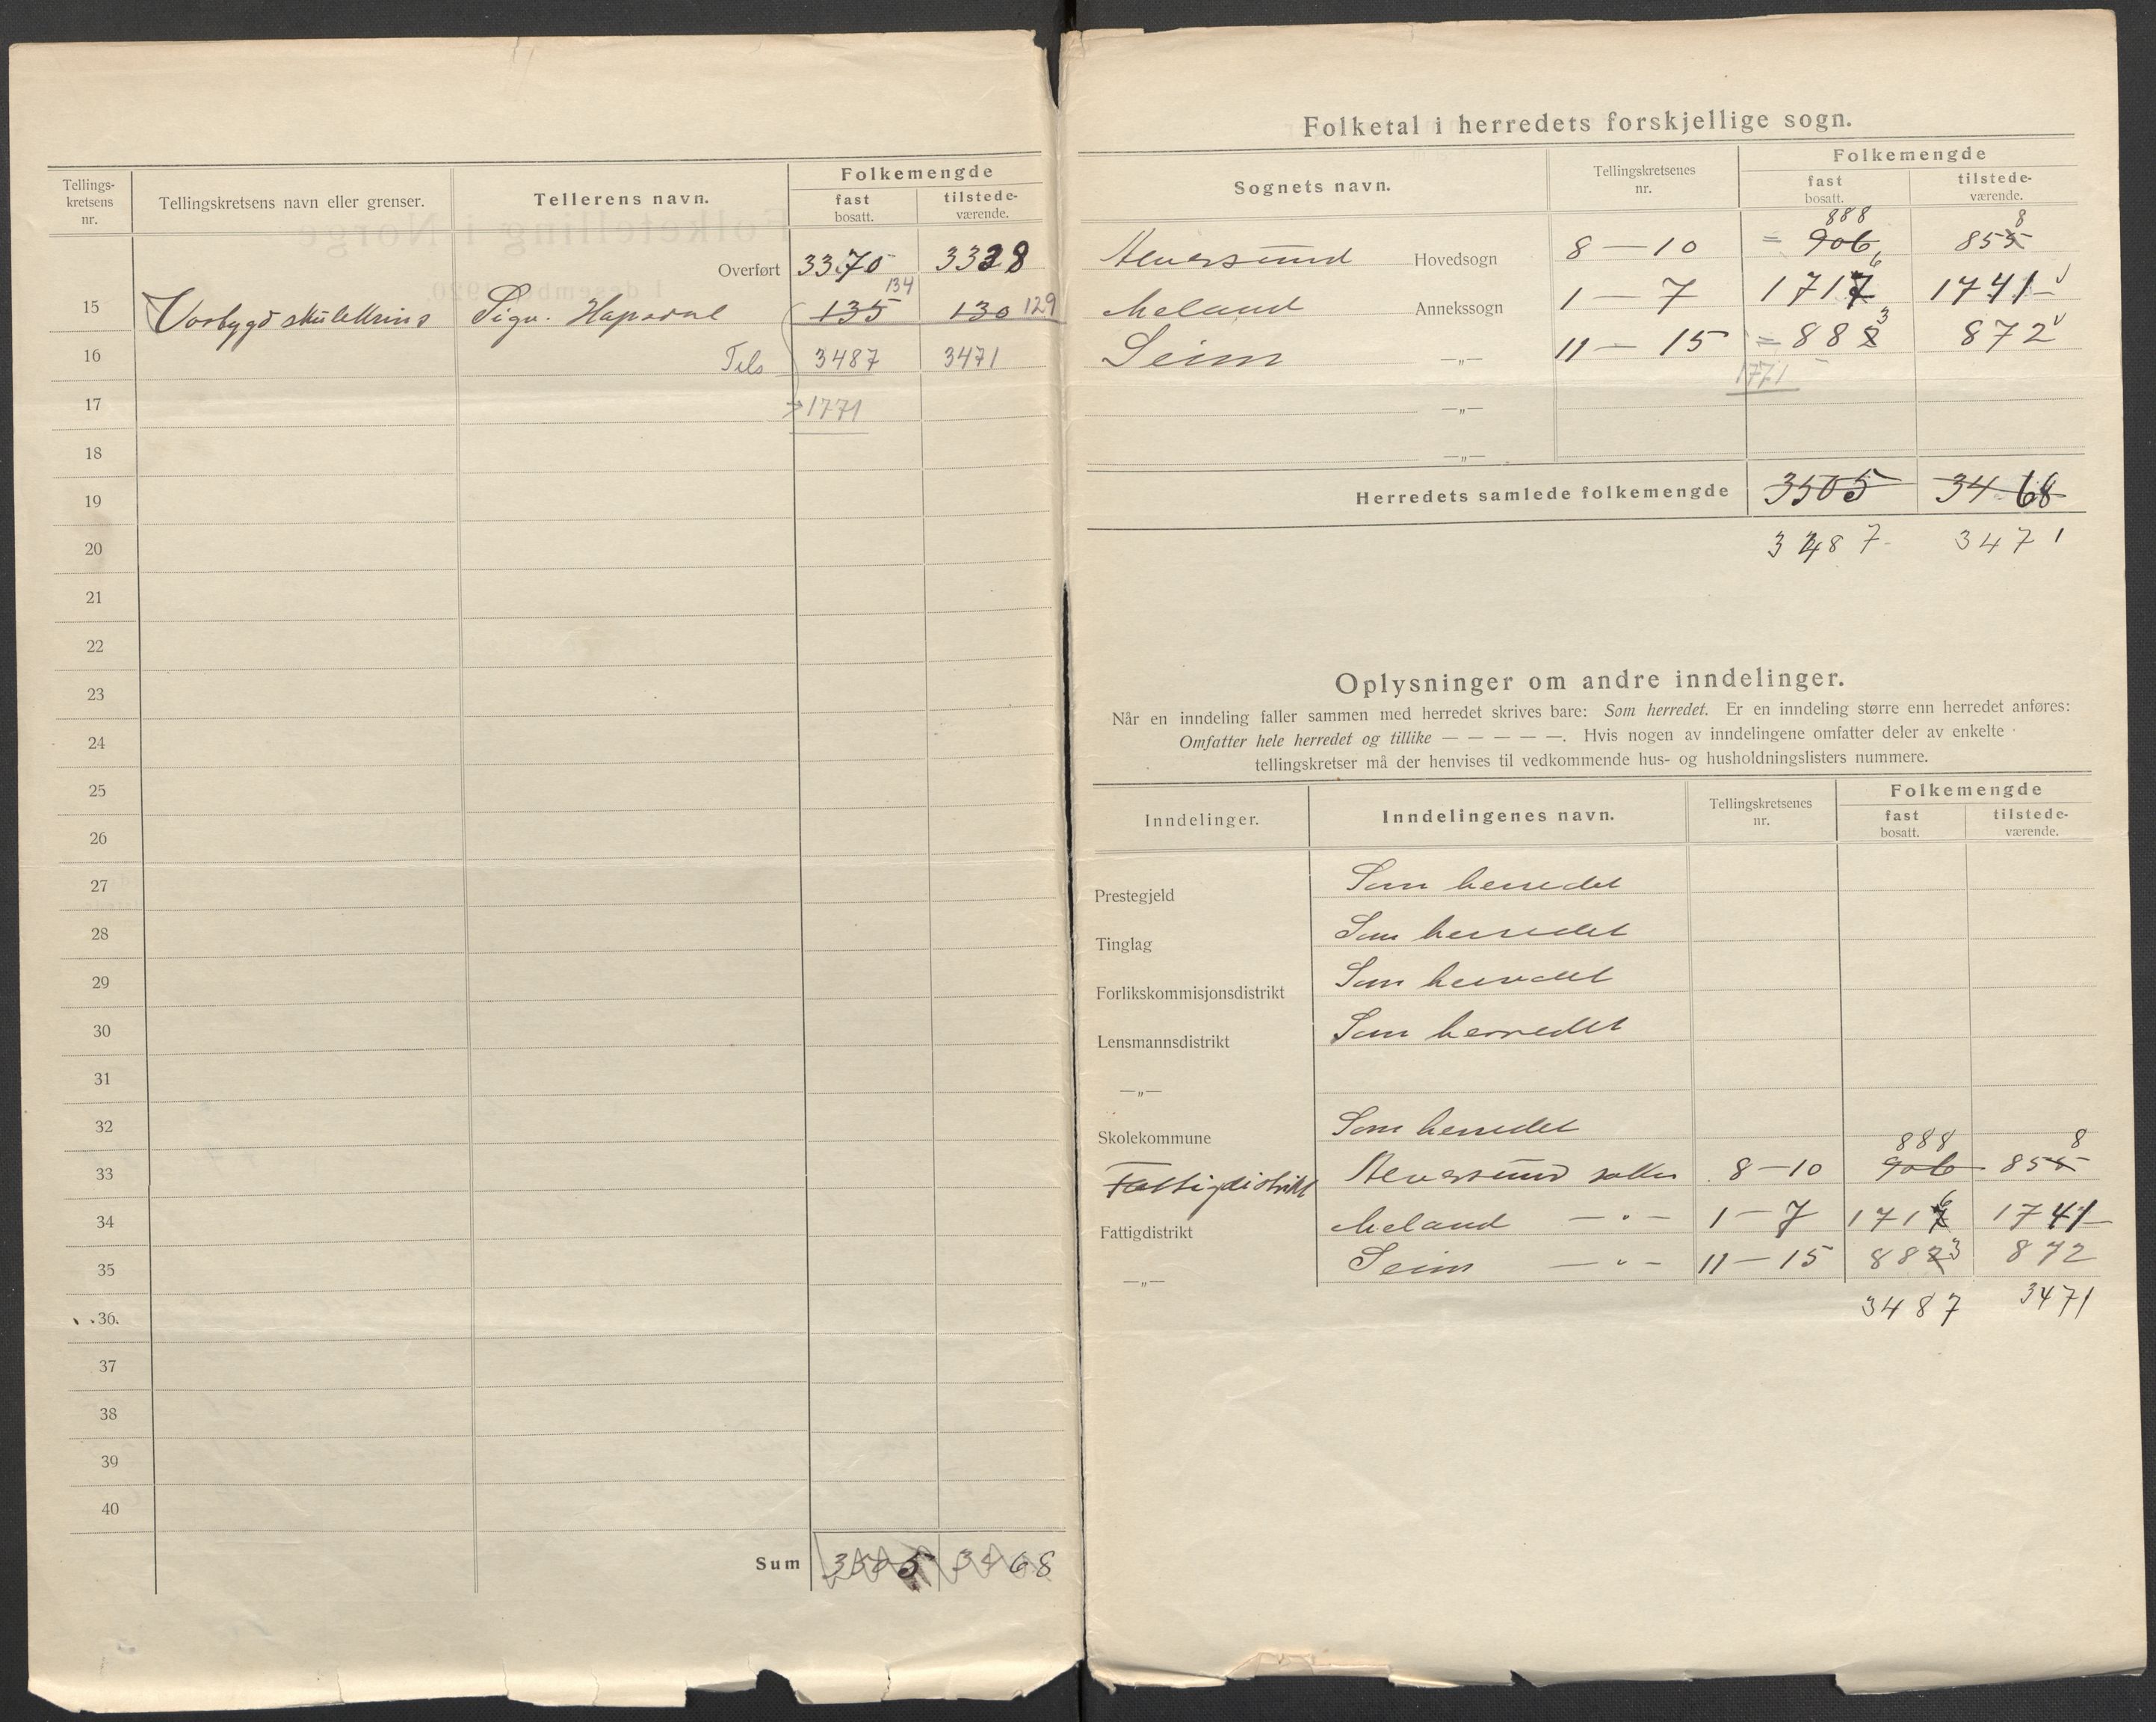 Tellings-
kretsens
nr.
Tellingskretsens navn eller grenser.
Tellerens navn.
Folkemengde
fast
bosatt.
tilstede-
værende.
Overført 3370 3338
134
15 Vosbygd skulekrins Sigv. 135 130 129
16 Tils 3487 3471
17 1771
18
19
20
21
22
23
24
25
26
27
28
29
30
31
32
33
34
35
36
37
38
39
40
Sum 3505 3468
Folketal i herredets forskjellige sogn.
Sognets navn.
Tellingskretsenes
nr.
Folkemengde
fast
bosatt.
tilstede-
værende.
888 8
Alversund Hovedsogn 8 — 10 = 906 855
6
Meland Annekssogn 1 — 7 1717 1741
3
Seim —„— 11 — 15 = 882 872
1771
—„—
—„—
Herredets samlede folkemengde 3505 3468
3487 3471
Oplysninger om andre inndelinger.
Når en inndeling faller sammen med herredet skrives bare: Som herredet. Er en inndeling større enn herredet anføres:
Omfatter hele herredet og tillike — — — — —. Hvis nogen av inndelingene omfatter deler av enkelte
tellingskretser må der henvises til vedkommende hus- og husholdningslisters nummere.
Inndelinger.
Inndelingenes navn.
Tellingskretsenes
nr.
Folkemengde
fast
bosatt.
tilstede-
værende.
Prestegjeld Som herredet
Tinglag Som herredet
Forlikskommisjonsdistrikt Som herredet
Lensmannsdistrikt Som herredet
—„—
Skolekommune Som herredet
888 8
Fattigdistrikt Alversund sokn 8—10 906 855
6
Fattigdistrikt Meland — „ — 1—7 1717 1741
—„— Seim — „ — 11—15 882 3 872
3487 3471